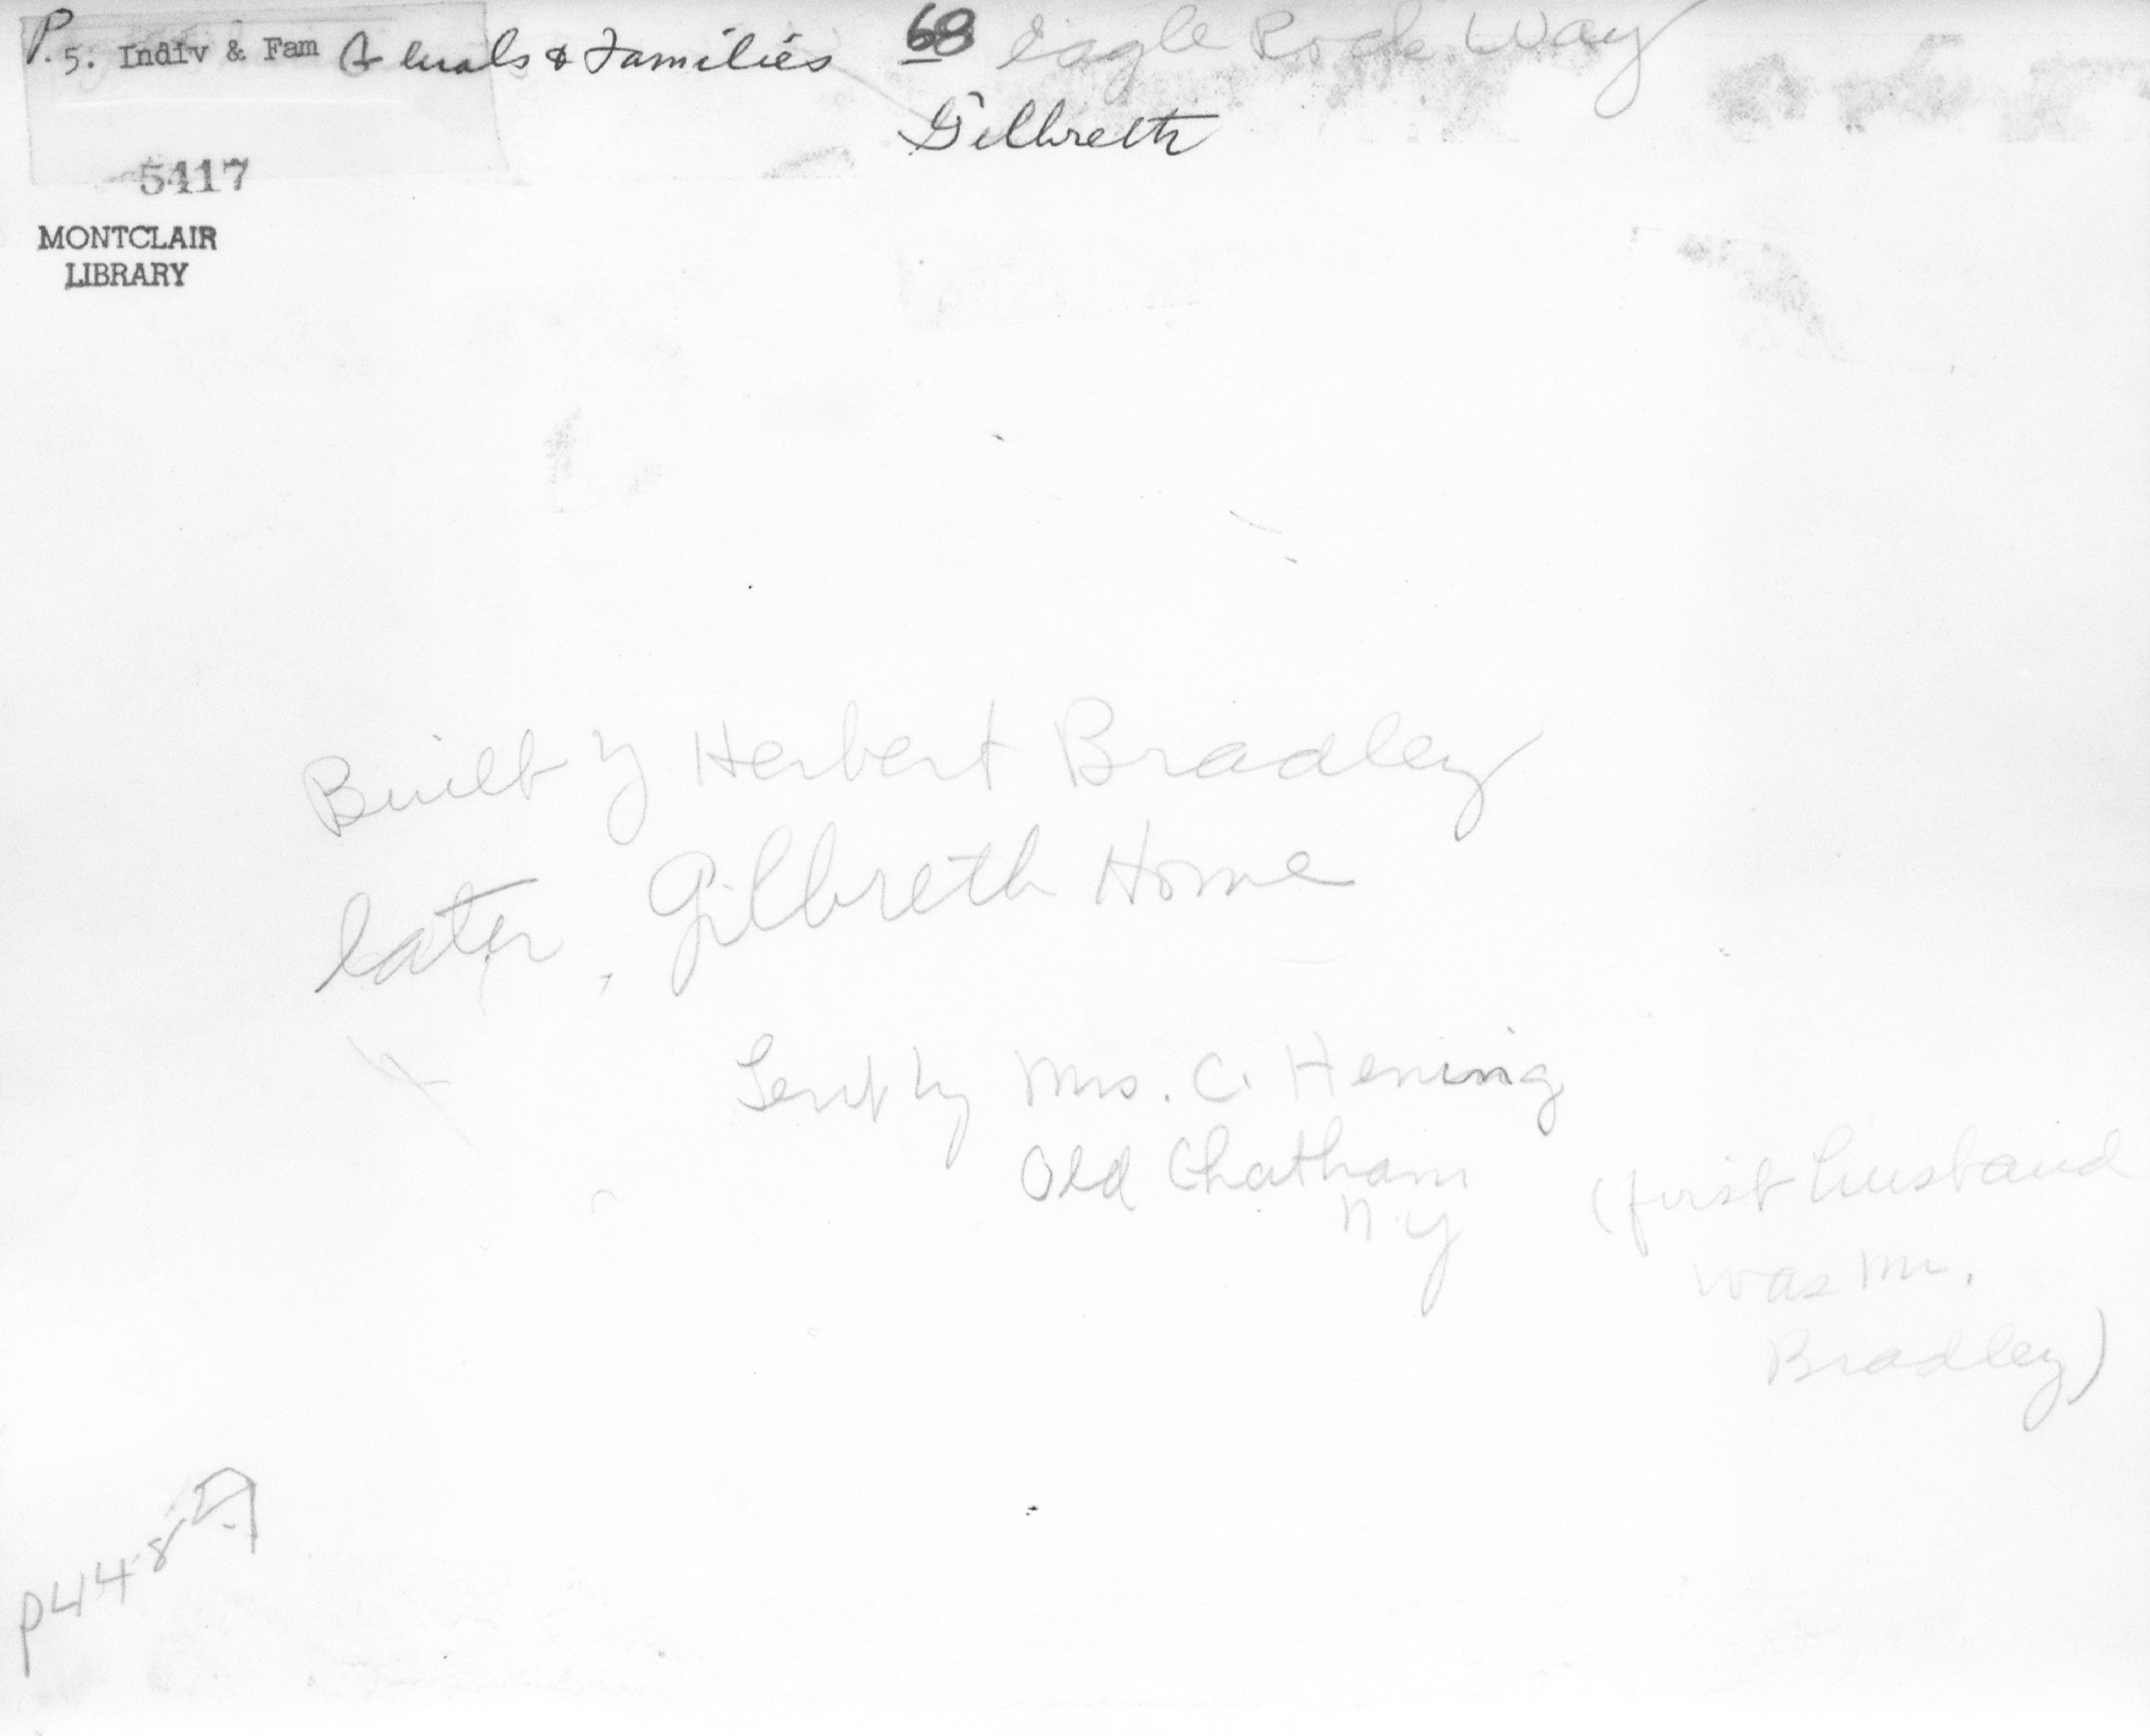 P. 5: Indiv & Fam duals & Families 68 Eagle Rock Way
Gilbreth
5417
MONTCLAIR
LIBRARY
Built by Herbert Bradley
later, Gilbreth Home
Sent by Mrs. C. Hening
Old Chatham
N.Y
(first husband
was Mr.
Bradley)
P4448